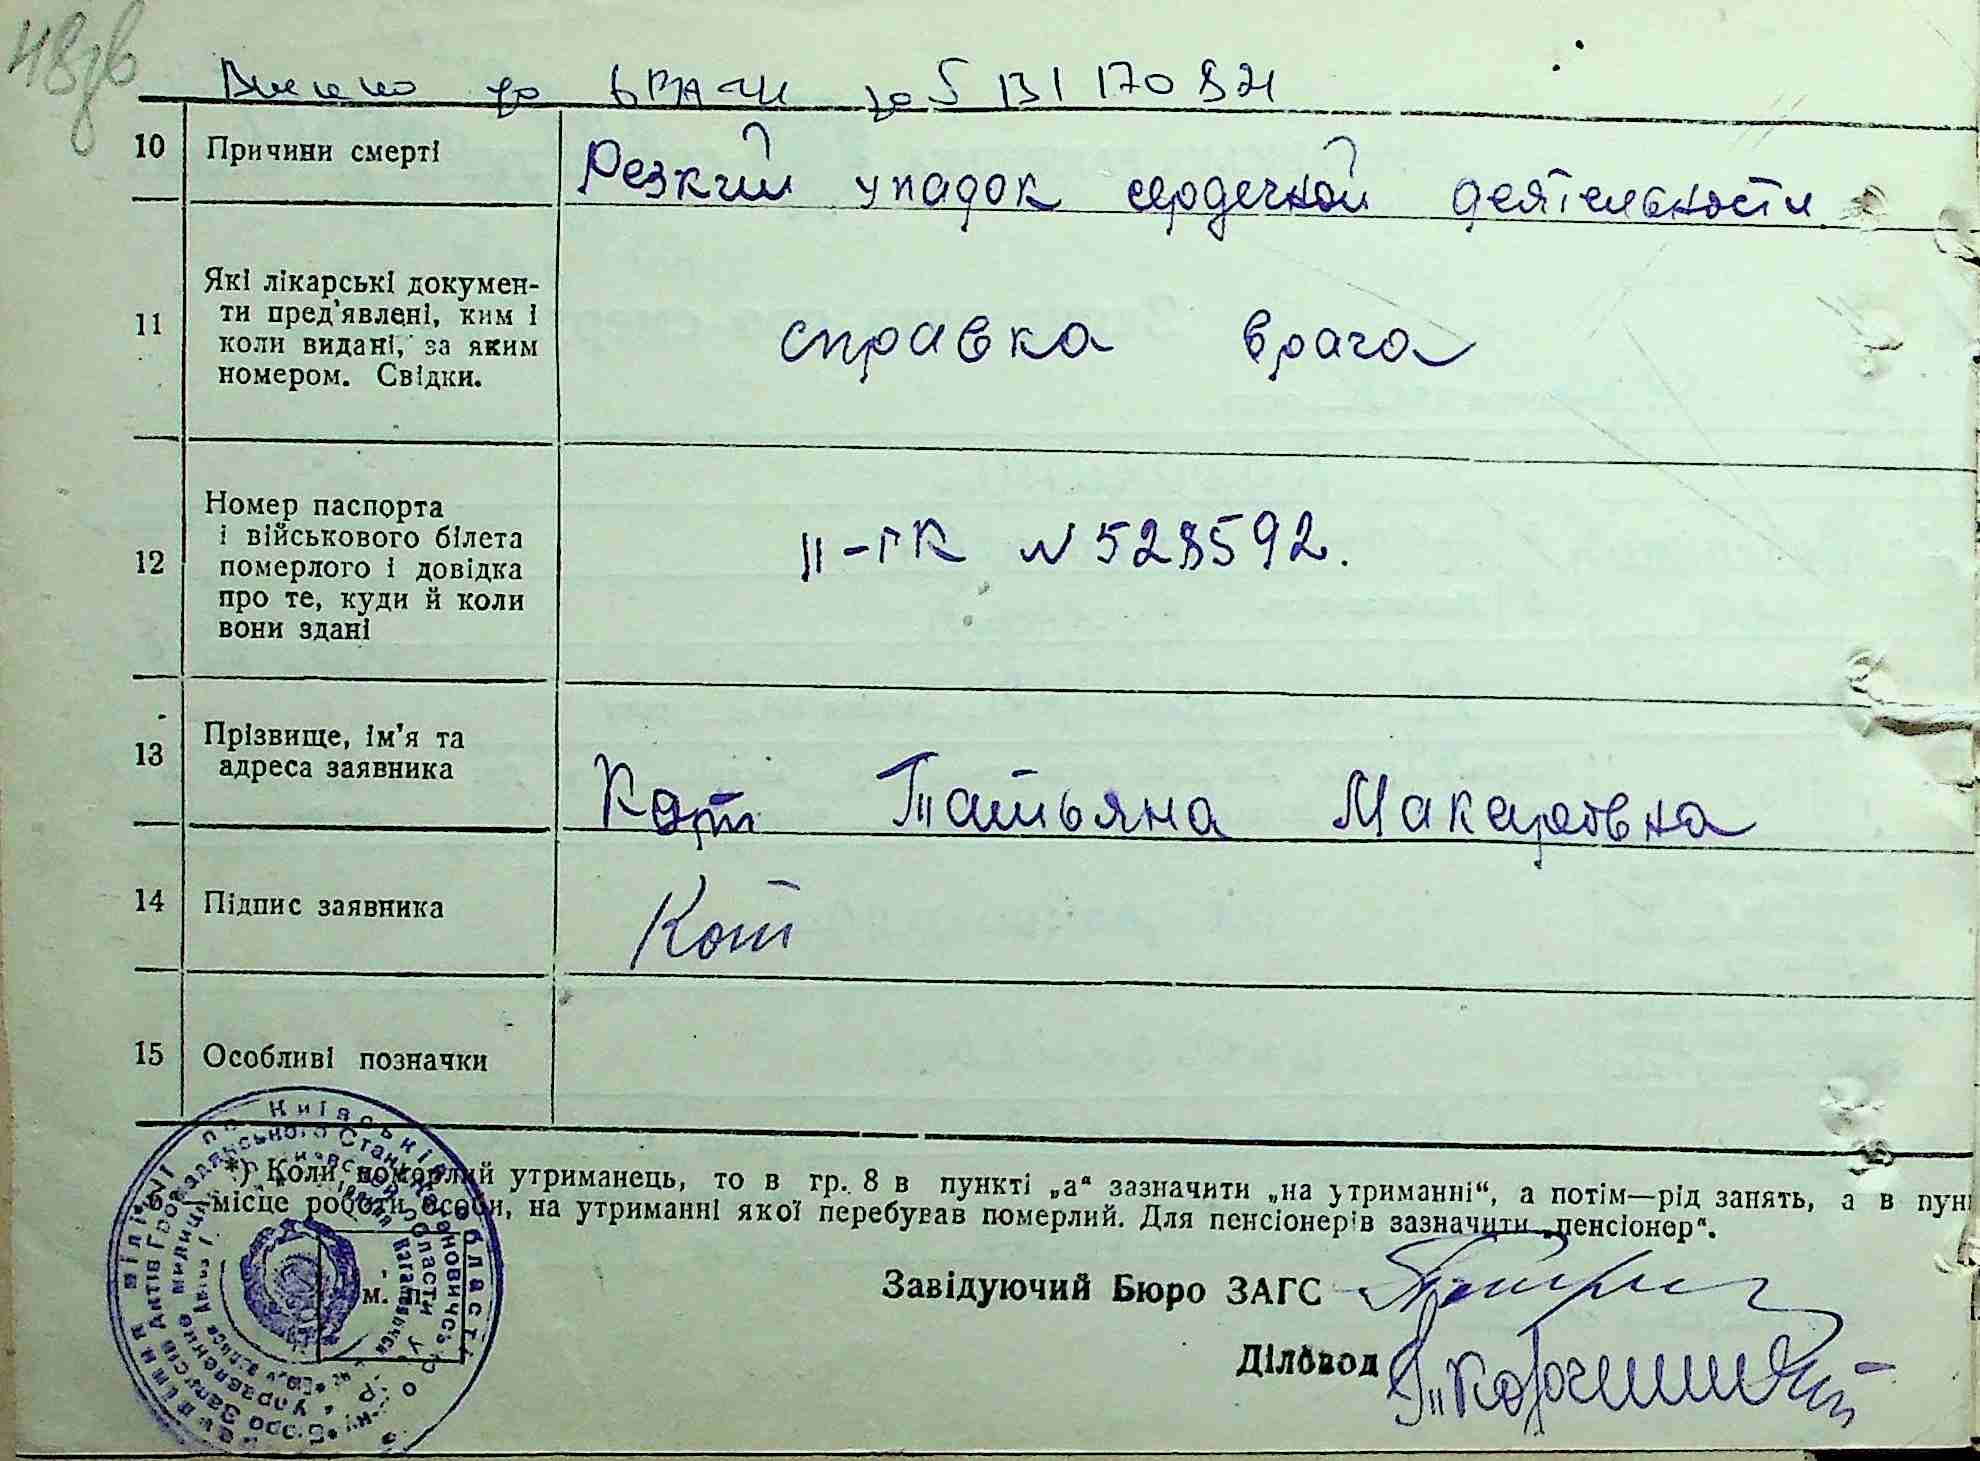 10 Причини смерті Резкий упадок сердечной деятельности
11 Які лікарські докумен-
ти пред'явлені, ким і
коли видані, за яким
номером. Свідки.
справка врача
12 Номер паспорта
і військового білета
померлого і довідка
про те, куди й коли
вони здані
II-ГК N 528592.
13 Прізвище, ім'я та
адреса заявника
Кот Татьяна Макаровна
14 Підпис заявника Кот
15 Особливі позначки
*) Коли померлий утриманець, то в гр. 8 в пункті „а“ зазначити „на утриманні“, а потім—рід занять, а в пун
місце роботи особи, на утриманні якої перебував померлий. Для пенсіонерів зазначити „пенсіонер“.
Завідуючий Бюро ЗАГС
м. п.
Діловод